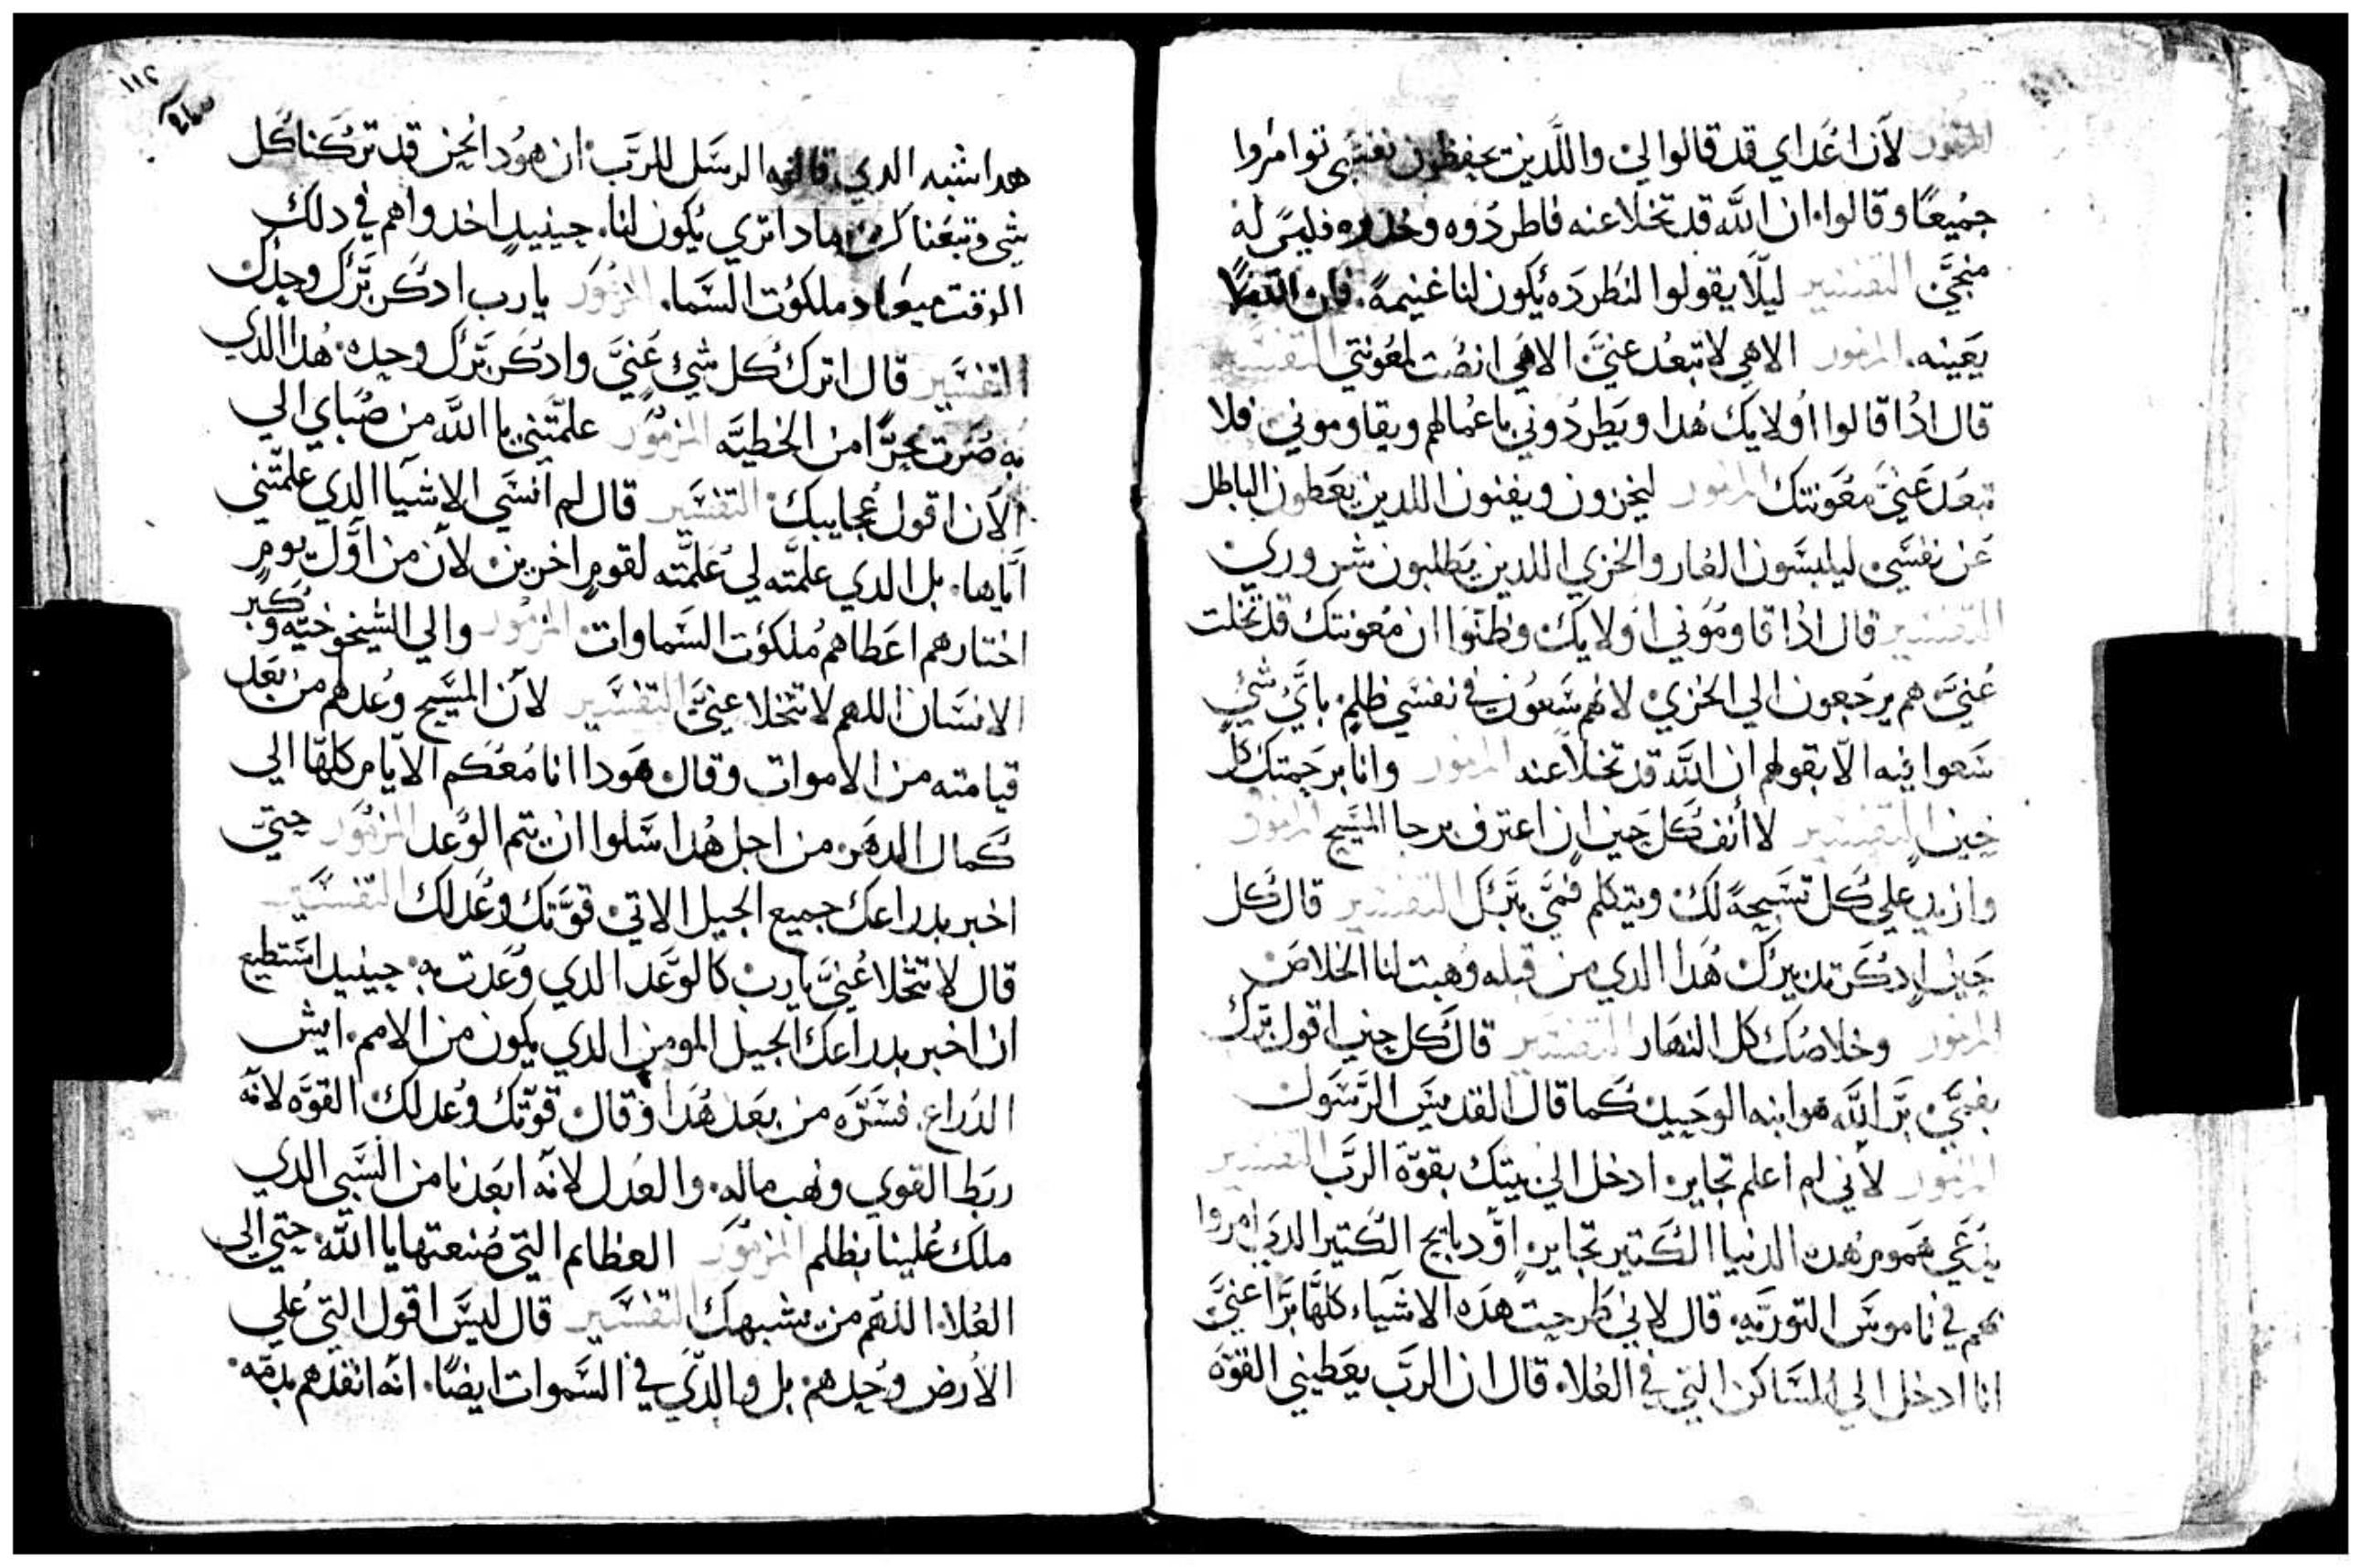 المزمور لأن اعداي قد قالوا لي واللدين يحفظون نفسي توامروا
جميعًا وقالوا ان الله قد تخلا عنه فاطردوه وخدوه فليس له
منجي التفسير ليلا يقولوا لنطرده يكون لنا غنيمة فان الله لا
يعينه المزمور الاهي لا تبعد عني الاهي انصت لمعونتي التفسير
قال ادا قالوا اولايك هدا ويطردوني باعمالهم ويقاوموني فلا
تبعد عني معونتك المزمور ليخزون ويفنون اللدين يعطون الباطل
عن نفسي ليلبسون العار والخزي اللدين يطلبون شروري
التفسير قال ادا قاوموني اولايك وظنوا ان معونتك قد تخلت
عني هم يرجعون الي الخزي لانهم سعون في نفسي ظلم باي شي
سعوا فيه الا بقولهم ان الله قد تخلا عنه المزمور وانا برحمتك كل
حين التفسير لا أنف كل حين ان اعترف برجا المسيح المزمور
وازيد علي كل تسبحة لك ويتكلم فمي ببرك التفسير قال كل
حين ادكرتك ببرك هدا الدي من قبله وهبت لنا الخلاص
المزمور وخلاصك كل النهار التفسير قال كل حين اقول برك
بفمي بر الله هو ابنه الوحيد كما قال القديس الرسول
المزمور لأني لم اعلم تجاير ادخل الي بيتك بقوة الرب التفسير
يدعي هموم هده الدنيا الكتير تجاير او دبايح الكتير الدي امروا
بهم في ناموس التوريه قال لاني طرحت هده الاشياء كلها برا عني
انا ادخل الي المساكن التي في العلا قال ان الرب يعطيني القوة
١١٢
هدا شبه الدي قالوه الرسل للرب ان هودا نحن قد تركنا كل
شي وتبعناك مادا تري يكون لنا حينيد اخدوا هم في دلك
الوقت ميعاد ملكوت السما المزمور يارب ادكر برك وحدك
التفسير قال اترك كل شي عني وادكر برك وحده هدا الدي
به صرت حرًا من الخطيه المزمور علمتني يا الله من صباي الي
الآن اقول عجايبك التفسير قال لم انسي الاشيا الدي علمتني
اياها بل الدي علمته لي علمته لقوم اخرين لأن من أول يوم
اختارهم اعطاهم ملكوت السماوات المزمور والي الشيخوخيه وكبر
الانسان اللهم لا تتخلا عني التفسير لأن المسيح وعدهم من بعد
قيامته من الاموات وقال هودا انا معكم الايام كلها الي
كمال الدهر من اجل هدا سلوا ان يتم الوعد المزمور حتي
اخبر بدراعك جميع الجيل الاتي قوتك وعدلك التفسير
قال لا تتخلا عني يارب كالوعد الدي وعدت به حينيد استطيع
ان اخبر بدراعك الجيل المومن الدي يكون من الامم ايش
الدراع فسره من بعد هدا وقال قوتك وعدلك القوه لانه
ربط القوي ونهب ماله والعدل لانه ابعدنا من السبي الدي
ملك علينا بظلم المزمور العظايم التي صنعتها يا الله حتي الي
العلا اللهم من يشبهك التفسير قال ليس اقول التي علي
الأرض وحدهم بل والدي في السموات ايضًا انه انقدهم بدمه